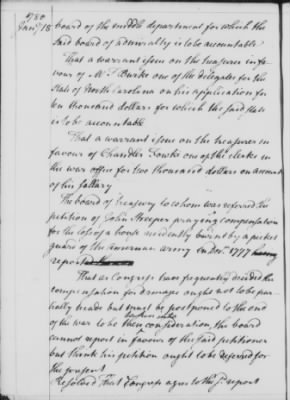 1780
Jany. 18
board of the middle department for which the
said board of admiralty is to be accountable
That a warrant issue on the treasurer in fa-
vour of Mr. Burke one of the delegates for the
State of North Carolina on his application for
ten thousand dollars for which the said State
is to be accountable
That a warrant issue on the treasurer in
favour of Chandler one of the clerks in
the war office for two thousand dollars on account
of his sallary
The board of treasury to whom was referred the
petition of John Streeper praying compensation
for the loss of a house accidently burnt by a picket
guard of the american army in Decr. 1777 having
reported
That as Congress have frequently decided the
compensation for damages ought not to be par-
tially made but must be postponed to the end
of the war to be then taken into consideration, the board
cannot report in favour of the said petitioner
but think his petition ought to be deferred for
the present
Resolved That Congress agree to the sd. report